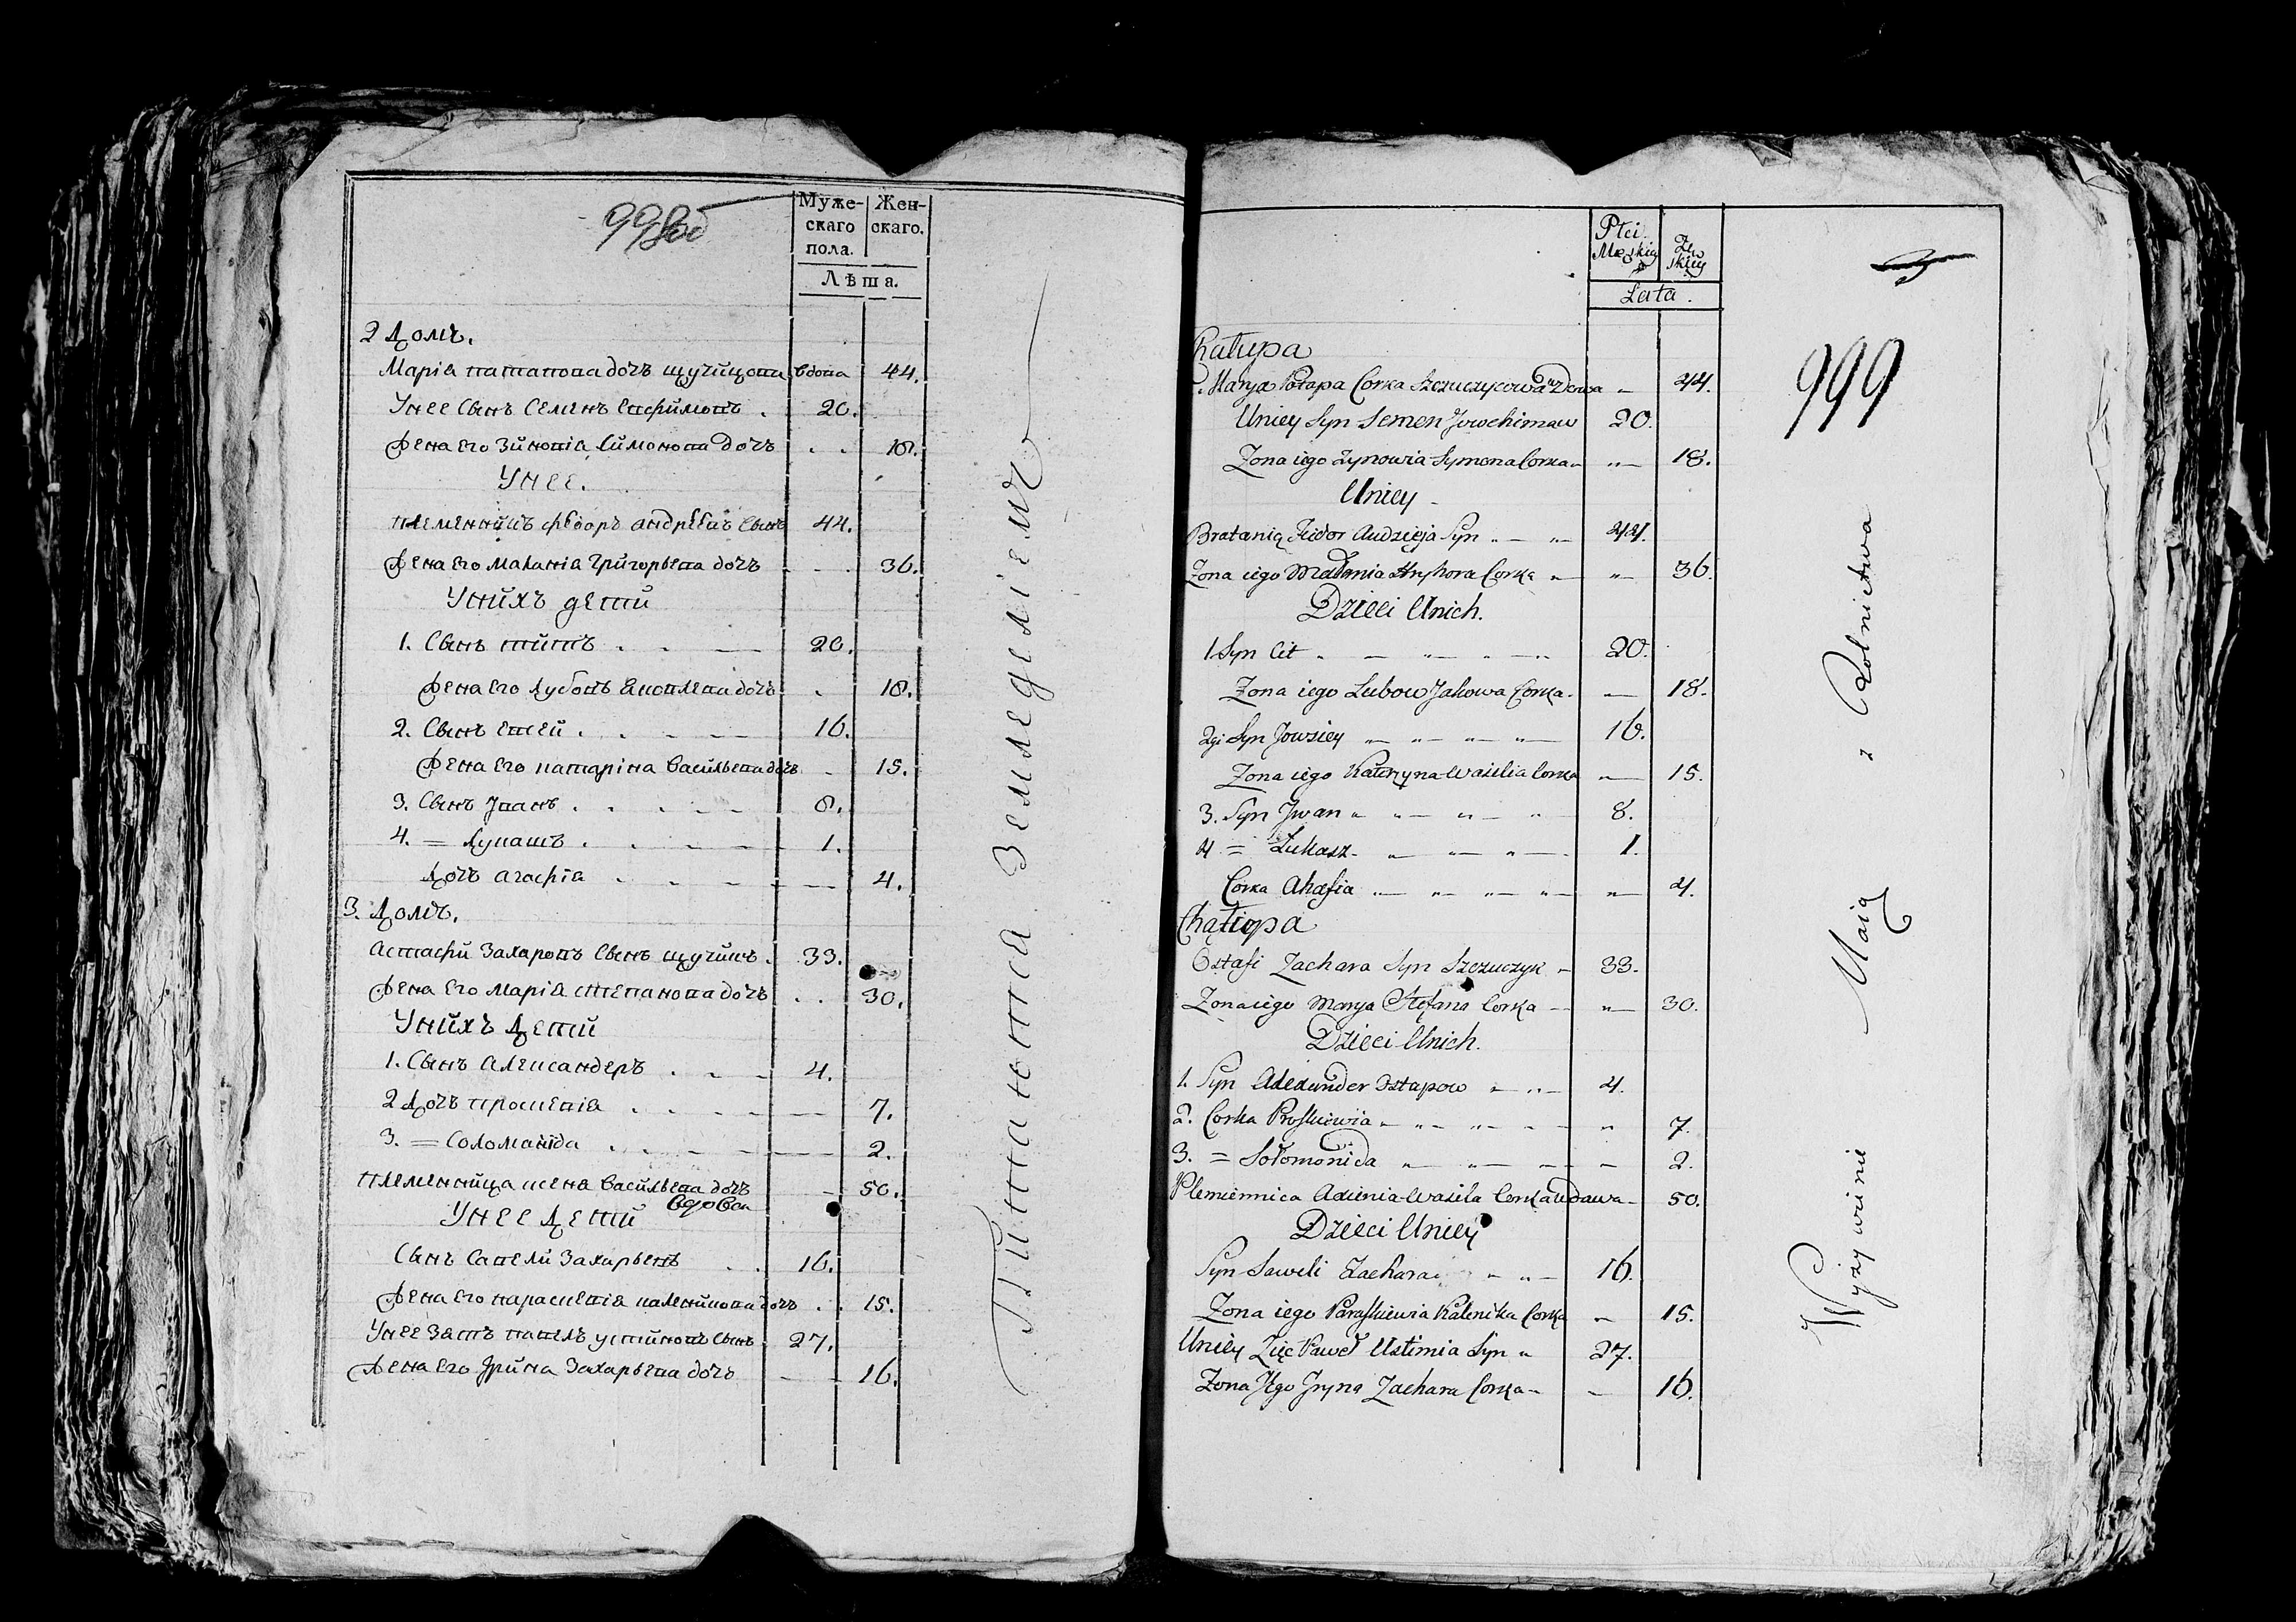 998об
Муже-скаго пола.
Жен-скаго.
Лѣта.
2 Домъ.
Марія патапова дочъ щучицова вдова 44.
Унее Сынъ Семенъ Евфимовъ . 20.
Жена Его Зиновія Симонова дочъ . . 18.
Унее.
племенникъ федоръ андрѣевъ Сынъ 44.
Жена Его маланія Григорьева дочъ - - . 36.
Унихъ дети
1. Сынъ титъ . . — 20.
Жена Его Любовъ Яковлева дочъ . 18.
2. Сынъ евсей . . . — — 16.
Жена Его катарина Васильева дочъ - 15.
3. Сынъ Іванъ . . . . — 8.
4. = Лукашъ . . . — — 1.
Дочъ агафія . . — — — 4.
3. Домъ.
Астафи Захаровъ Сынъ щучикъ . 33.
Жена Его Марія степанова дочъ . . 30.
Унихъ Дети
1. Сынъ Александеръ . - — 4.
2 Дочъ проскевія . . . — — 7.
3. = Соломанида . . — — — 2.
племенница ксеня Васильева дочъ — 50.
вдова
Унее Дети
Сынъ Савели Захарьевъ . . 16.
Жена Его параскевія каленикова дочъ . . 15.
Унее Зять павелъ устиновъ Сынъ 27.
Жена Его Ірина Захарьева дочъ — — 16.
Питаются Земледеліемъ
Płci Męskiey
Żeńskiey
Lata.
999
Chałupa
Marya Potapa Corka Szczuczycowa Wdowa — 44.
Uniey Syn Semen Jowchimaw 20.
Zona iego Zynowia Symona Corka „ „— 18.
Uniey —
Bratanią Fiedor Andzieja Syn „ — „ 44.
Zona iego Małania Hryhora Corka „— „— 36.
Dzieci Unich.
1 Syn Cit „ — „— „ —„ 20.
Zona iego Lubow Jakowa Corka. — 18.
2gi Syn Jowsiey „— „— „— „— 16.
Zona iego Katerzyna Wasilia Corka „— 15.
3. Syn Jwan „ „— „— „ 8.
4 = Łukasz — „— „— „— 1.
Corka Ahafia „— „— „— „— „— 4.
Chałupa
Ostafi Zachara Syn Szczuczyk — 33.
Zona iego Marya Stefana Corka — „— 30.
Dzieci Unich.
1. Syn Alexander Ostapow „— „— 4.
2. Corka Proskiewia „— „— „— „ 7.
3. = Sołomonida „— „— — — 2.
Plemiennica Axienia Wasila Corka Wdawa — 50.
Dzieci Uniey
Syn Saweli Zachara „ „— 16.
Zona iego Paraskiewia Kalenika Corka „— 15.
Uniey Zięć Paweł Ustimia Syn „ 27.
Zona Jego Jryna Zachara Corka — — 16.
Wyzywienie Maią z Rolnictwa